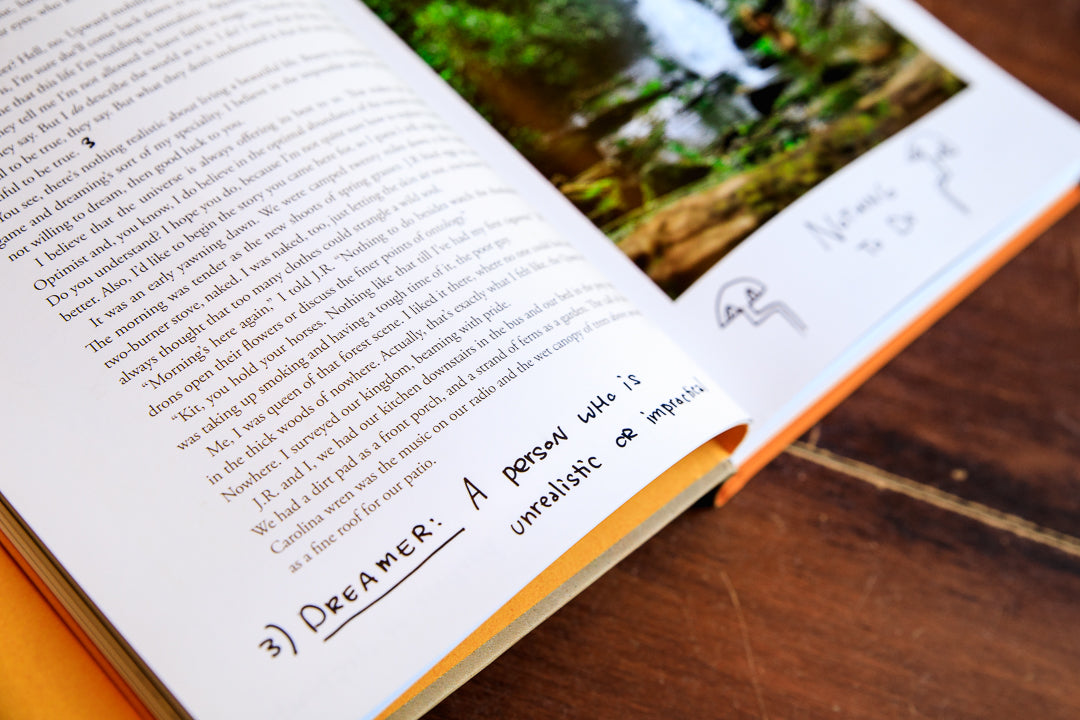 er eyes, who
ere? Hell, no. Upward mobility
is, I'm sure she'll come back down to
me that this life I'm building is unrealistic.
hey tell me I'm not allowed to have faith in magic.
hey say. But I do describe the world as it is. I
d to be true, they say. But what they don't understand is that the
utiful to be true. 3
You see, there's nothing realistic about living a beautiful life. Beauty is
game and dreaming's sort of my speciality. I believe in the impossible
not willing to dream, then good luck to you.
I believe that the universe is always offering its best to us.
Optimist and, you know, I do believe in the optimal abundance of the
Do you understand? I hope you do, because I'm not quite sure how
better. Also, I'd like to begin the story you came here for, so I guess I will
It was an early yawning dawn. We were camped twenty miles down
The morning was tender as the new shoots of spring grasses. J.R. had
two-burner stove, naked. I was naked, too, just letting the skin air out
always thought that too many clothes could strangle a wild soul.
"Morning's here again," I told J.R. "Nothing to do besides watch the
drons open their flowers or discuss the finer points of ontology."
"Kir, you hold your horses. Nothing like that till I've had my
was taking up smoking and having a tough time of it, the poor guy.
Me, I was queen of that forest scene. I liked it there, where no one could
in the thick woods of nowhere. Actually, that's exactly what I felt like, the
Nowhere. I surveyed our kingdom, beaming with pride.
J.R. and I, we had our kitchen downstairs in the bus and our bed in the
We had a dirt pad as a front porch, and a strand of ferns as a garden. The call of
Carolina wren was the music on our radio and the wet canopy of trees down
as a fine roof for our patio.
3) DREAMER: A person who is
unrealistic or impractical
Nothing
to do